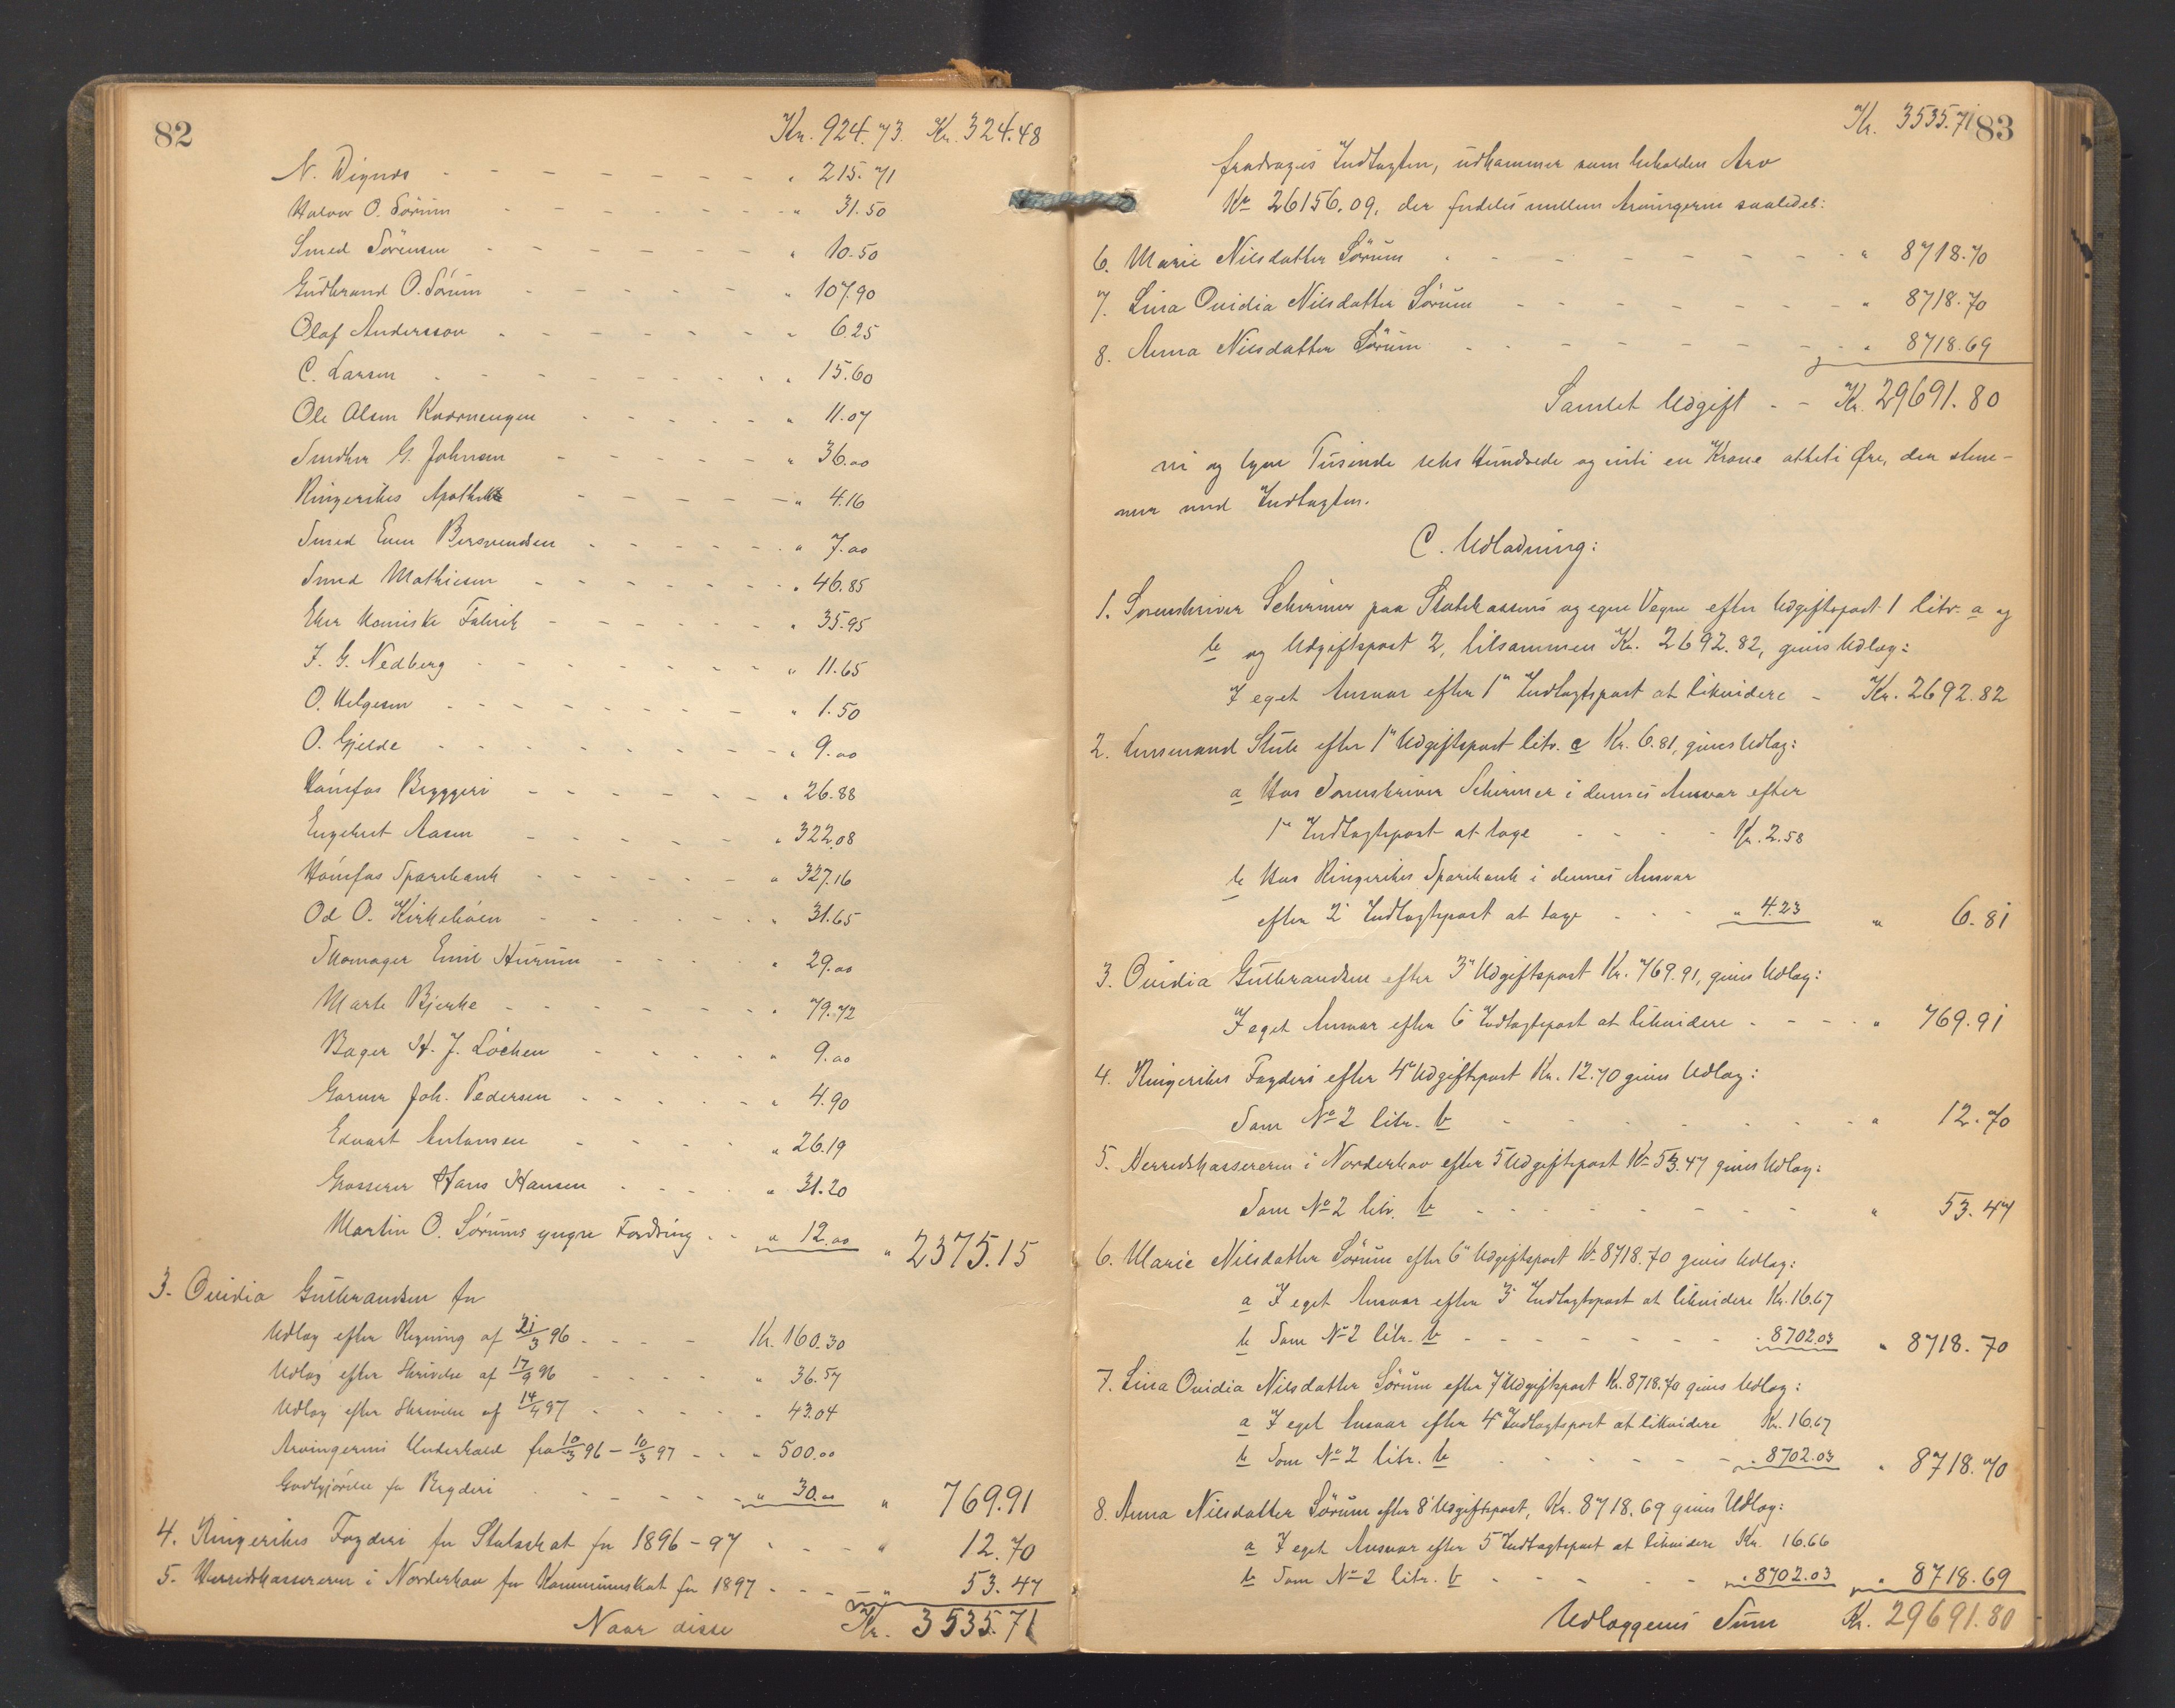 82
Kr. 924.73. Kr. 324.48
N. Wignes - - - - - - - - " 215.71
Halvor O. Sörum - - - - - - - " 31.50
Smed Sörensen - - - - - - - " 10.50
Gudbrand O. Sörum - - - - - " 107.90
Olaf Andersson - - - - - - - " 6.25
C. Larsen - - - - - - - - " 15.60
Ole Olsen Kværnengen - - - - - " 11.07
Snedker G. Johnsen - - - - - - " 36.00
Ringerikes Apothek - - - - - " 4.16
Smed Even Bersvendsen - - - - - " 7.00
Smed Mathiesen - - - - - - - " 46.85
Eker kemiske Fabrik - - - - - - " 35.95
J. G. Nedberg - - - - - - - " 11.65
O. Helgesen - - - - - - - - " 1.50
O. Gjelde - - - - - - - - " 9.00
Hönefos Bryggeri - - - - - - " 26.88
Engebret Aasen - - - - - - " 322.08
Hönefos Sparebank - - - - - - " 327.16
Od O. Kirkebóen - - - - - - " 31.65
Skomager Emil Hurum - - - - " 29.00
Marte Bjerke - - - - - - - " 79.72
Bager H. J. Löchen - - - - - " 9.00
Garver Joh. Pedersen - - - - - " 4.90
Edvart Antonsen - - - - - " 26.19
Grosserer Hans Hansen - - - - " 31.20
Martin O. Sörums yngre Fordring - - " 12.00 " 2375.15
3. Ovidia Gulbrandsen for
Udlæg efter Regning af 21/3 96 - - - - Kr. 160.30
Udlæg efter Skrivelse af 17/9 96 - - - - " 36.57
Udlæg efter Skrivelse af 14/4 97 - - - - " 43.04
Arvingernes Underhold fra 10/3 96 - 10/3 97 - - " 500.00
Godtgjörelse for Bryderi - - - - - - " 30.00 " 769.91
4. Ringerikes Fogderi for Statsskat for 1896-97 - - - " 12.70
5. Herredskassereren i Norderhov for Kommuneskat for 1897 - - - " 53.47
Naar disse Kr. 3535.71
Kr. 3535.71
83
fradrages Indtægten, udkommer som beholden Arv
Kr 26156.09, der fordeles mellem Arvingerne saaledes:
6. Marie Nilsdatter Sörum - - - - - - - - " 8718.70
7. Lina Ovidia Nilsdatter Sörum - - - - - - - " 8718.70
8. Anna Nilsdatter Sörum - - - - - - - - " 8718.69
Samlet Udgift - - Kr. 29691.80
ni og tyve Tusinde seks Hundrede og niti en Krone otteti Øre, der stem-
mer med Indtægten.
C. Udlodning:
1. Sorenskriver Schirmer paa Statskassens og egne Vegne efter Udgiftspost 1 litr. a og
b og Udgiftspost 2, tilsammen Kr. 2692.82, gives Udlæg:
I eget Ansvar efter 1" Indtægtspost at likvidere - Kr. 2692.82
2. Lensmand Stub efter 1" Udgiftspost litr. c Kr. 6.81, gives Udlæg:
a Hos Sorenskriver Schirmer i dennes Ansvar efter
1" Indtægtspost at tage - - - - Kr. 2.58
b Hos Ringerikes Sparebank i dennes Ansvar
efter 2" Indtægtspost at tage - - - " 4.23 " 6.81
3. Ovidia Gulbrandsen efter 3" Udgiftspost Kr. 769.91, gives Udlæg:
I eget Ansvar efter 6" Indtægtspost at likvidere - - - - " 769.91
4. Ringerikes Fogderi efter 4" Udgiftspost Kr. 12.70 gives Udlæg:
Som No 2 litr. b - - - - - - - - " 12.70
5. Herredskassereren i Norderhov efter 5 Udgiftspost Kr 53.47 gives Udlæg:
Som No 2 litr. b - - - - - - - - " 53.47
6. Marie Nilsdatter Sörum efter 6" Udgiftspost Kr 8718.70 gives Udlæg:
a I eget Ansvar efter 3" Indtægtspost at likvidere Kr. 16.67
b Som No 2 litr. b - - - - - - - " 8702.03 " 8718.70
7. Lina Ovidia Nilsdatter Sörum efter 7 Udgiftspost Kr. 8718.70 gives Udlæg:
a I eget Ansvar efter 4" Indtægtspost at likvidere Kr. 16.67
b Som No 2 litr. b - - - - - - " 8702.03 " 8718.70
8. Anna Nilsdatter Sörum efter 8" Udgiftspost, Kr. 8718.69 gives Udlæg:
a I eget Ansvar efter 5 Indtægtspost at likvidere Kr. 16.66
b Som No 2 litr. b - - - - - " 8702.03 " 8718.69
Udlæggenes Sum Kr. 29691.80